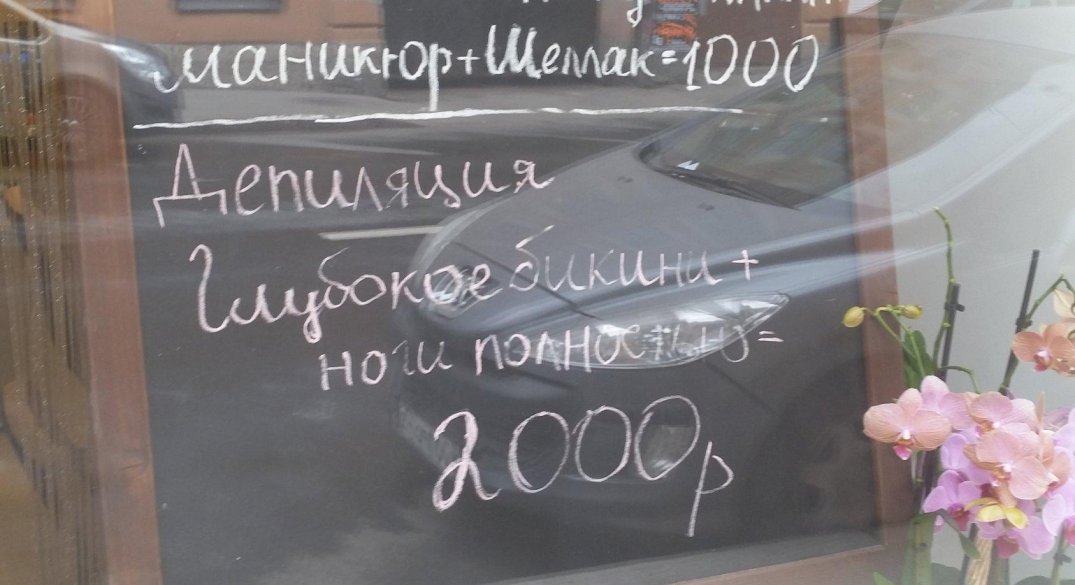 маникюр+Шеллак=1000
Депиляция
Глубокое бикини +
ноги полностью=
2000р